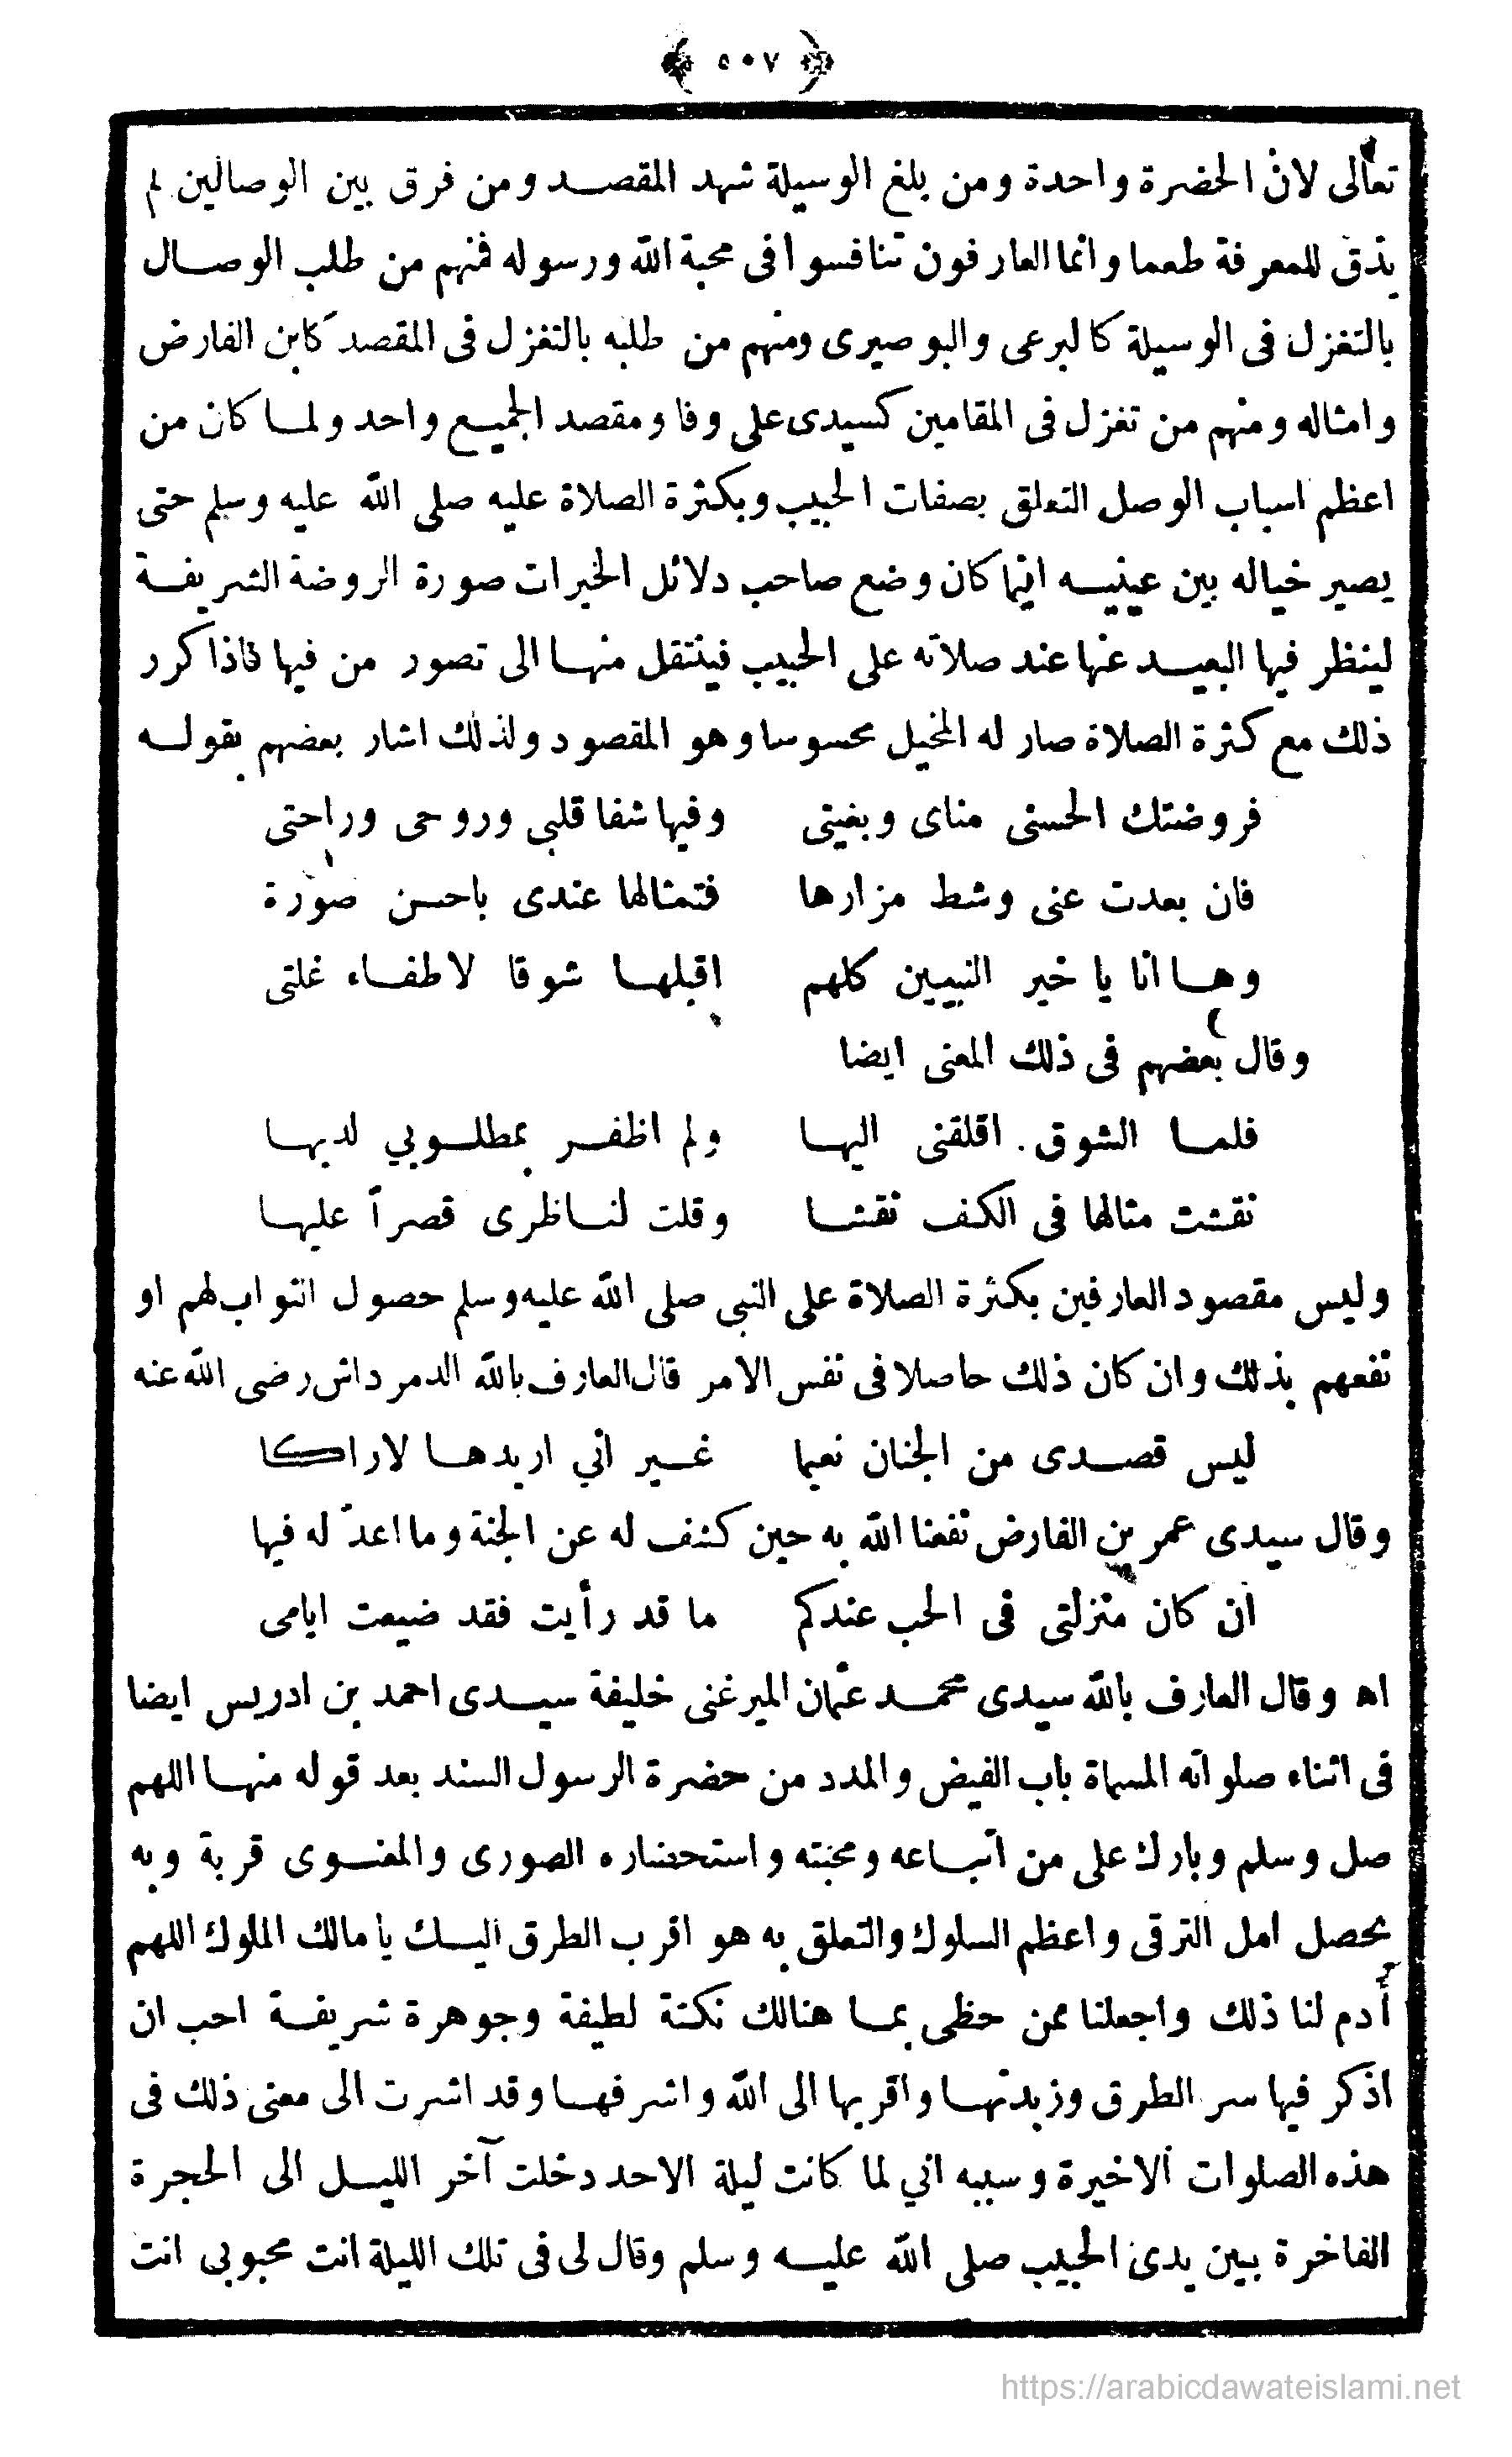 ﴿ ٥٠٧ ﴾
تعالى لان الحضرة واحدة ومن بلغ الوسيلة شهد المقصد ومن فرق بين الوصالين لم
يذق للمعرفة طعما وانما العارفون تنافسوا فى محبة الله ورسوله فمنهم من طلب الوصال
بالتغزل فى الوسيلة كالبرعى والبوصيرى ومنهم من طلبه بالتغزل فى المقصد كابن الفارض
وامثاله ومنهم من تغزل فى المقامين كسيدى على وفا ومقصد الجميع واحد ولما كان من
اعظم اسباب الوصل التعلق بصفات الحبيب وبكثرة الصلاة عليه صلى الله عليه وسلم حتى
يصير خياله بين عينيه اينما كان وضع صاحب دلائل الخيرات صورة الروضة الشريفة
لينظر فيها البعيد عنها عند صلاته على الحبيب فينتقل منها الى تصور من فيها فاذا كرر
ذلك مع كثرة الصلاة صار له المخيل محسوسا وهو المقصود ولذلك اشار بعضهم بقوله
فروضتك الحسنى مناى وبغيتى وفيها شفا قلبى وروحى وراحتى
فان بعدت عنى وشط مزارها فتمثالها عندى باحسن صورة
وها انا يا خير النبيين كلهم اقبلها شوقا لاطفاء غلتى
وقال بعضهم فى ذلك المعنى ايضا
فلما الشوق اقلقنى اليها ولم اظفر بمطلوبي لديها
نقشت مثالها فى الكف نقشا وقلت لناظرى قصرا عليها
وليس مقصود العارفين بكثرة الصلاة على النبى صلى الله عليه وسلم حصول الثواب لهم او
نفعهم بذلك وان كان ذلك حاصلا فى نفس الامر قال العارف بالله الدمرداش رضى الله عنه
ليس قصدى من الجنان نعيما غير اني اريدها لاراكا
وقال سيدى عمر بن الفارض نفعنا الله به حين كشف له عن الجنة وما اعدّ له فيها
ان كان منزلتى فى الحب عندكم ما قد رأيت فقد ضيعت ايامى
اه وقال العارف بالله سيدى محمد عثمان الميرغنى خليفة سيدى احمد بن ادريس ايضا
فى اثناء صلواته المسماة باب الفيض والمدد من حضرة الرسول السند بعد قوله منها اللهم
صل وسلم وبارك على من اتباعه ومحبته واستحضاره الصورى والمعنوى قربة وبه
يحصل امل الترقى واعظم السلوك والتعلق به هو اقرب الطرق اليك يا مالك الملوك اللهم
أدم لنا ذلك واجعلنا ممن حظى بما هنالك نكتة لطيفة وجوهرة شريفة احب ان
اذكر فيها سر الطرق وزبدتها واقربها الى الله واشرفها وقد اشرت الى معنى ذلك فى
هذه الصلوات الاخيرة وسببه اني لما كانت ليلة الاحد دخلت آخر الليل الى الحجرة
الفاخرة بين يدى الحبيب صلى الله عليه وسلم وقال لى فى تلك الليلة انت محبوبى انت
https://arabicdawateislami.net